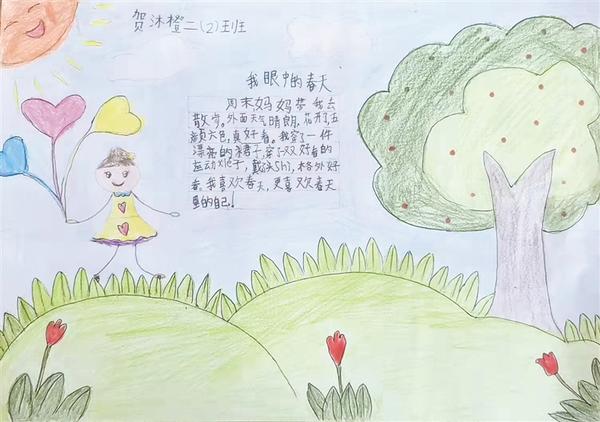 贺沐橙二(2)班
我眼中的春天
周末妈妈带我去
散步。外面天气晴朗,花开了五
颜六色,真好看。我穿了一件
漂亮的裙子,穿了双好看的
运动xié子,戴shǒu shì,格外好
看。我喜欢春天,更喜欢春天
里的自己。